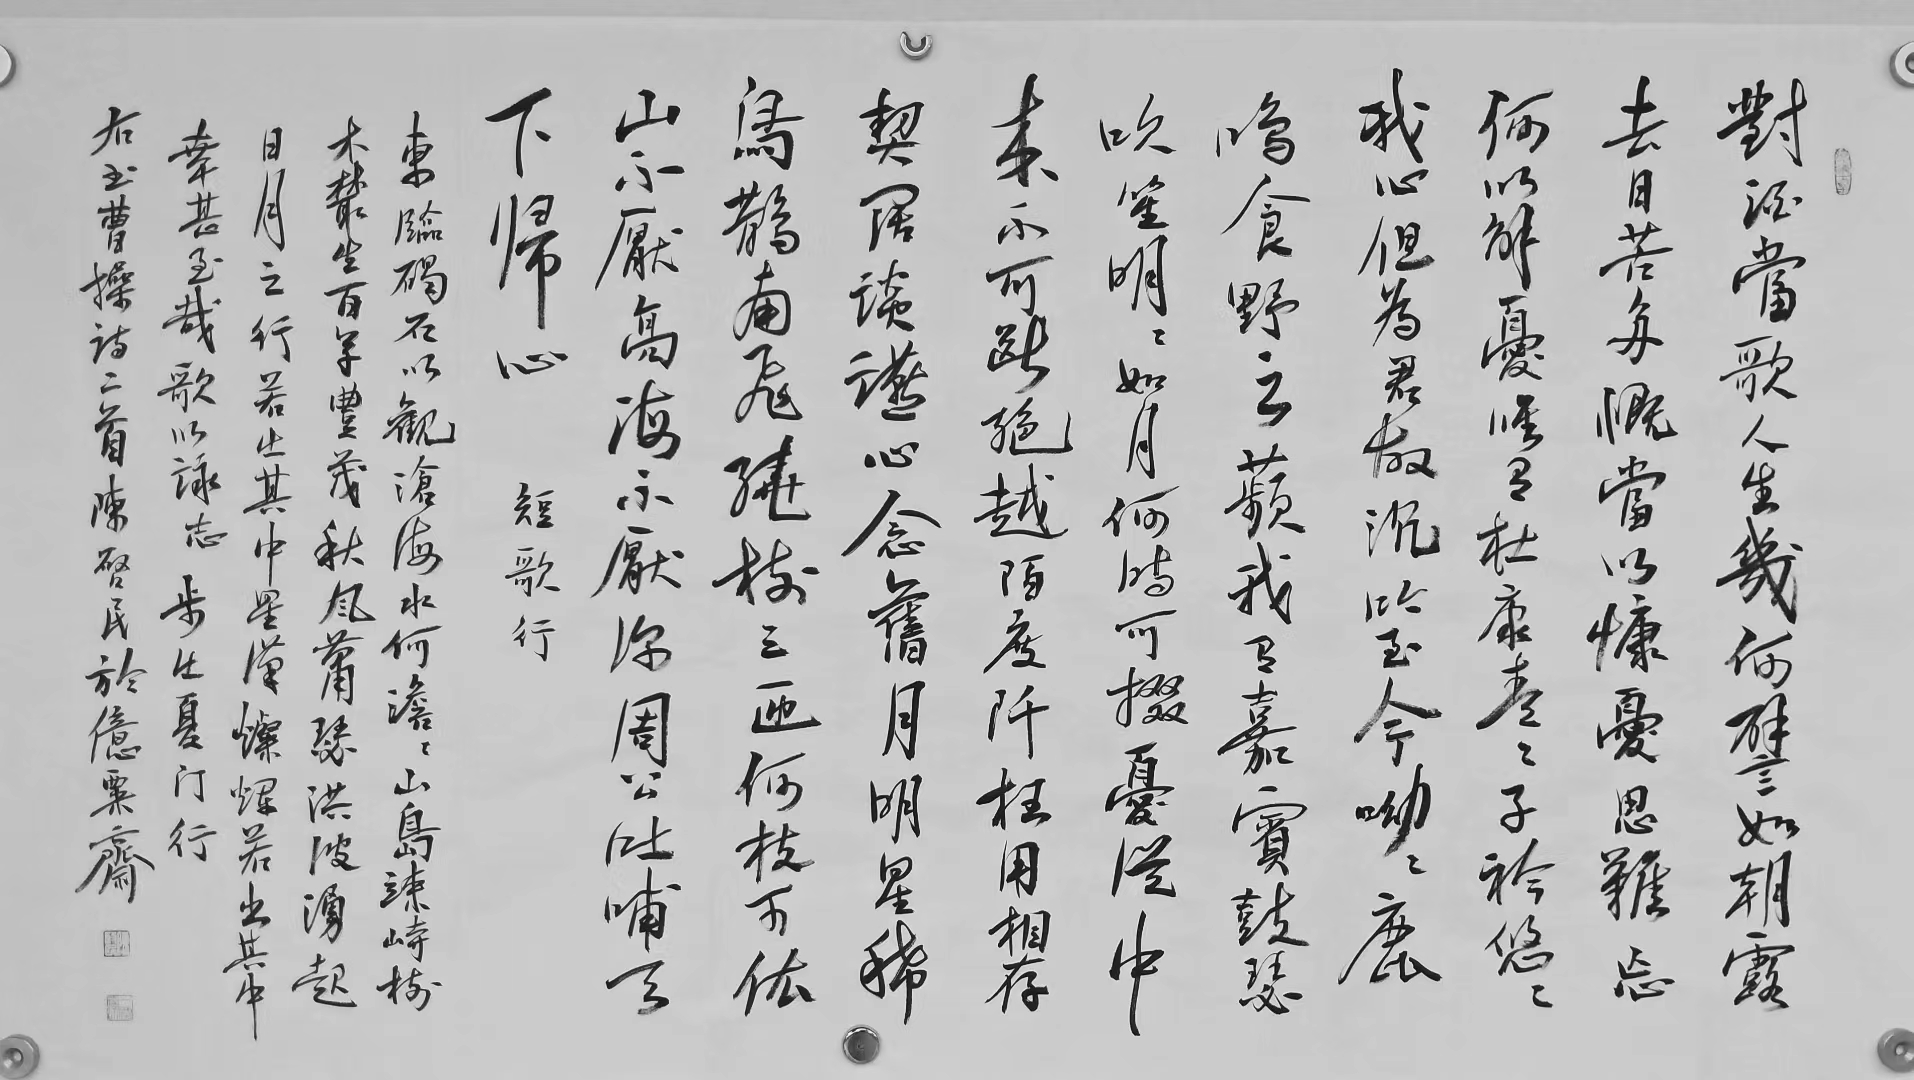 對酒當歌人生幾何譬如朝露
去日苦多慨當以慷憂思難忘
何以解憂唯有杜康青〻子衿悠〻
我心但為君故沉吟至今呦〻鹿
鳴食野之蘋我有嘉賓鼓瑟
吹笙明〻如月何時可掇憂從中
來不可斷絕越陌度阡枉用相存
契闊談讌心念舊月明星稀
烏鵲南飛繞樹三匝何枝可依
山不厭高海不厭深周公吐哺天
下帰心 短歌行
東臨碣石以觀滄海水何澹〻山島竦峙樹
木叢生百草豐茂秋風蕭瑟洪波湧起
日月之行若出其中星漢燦爛若出其中
幸甚至哉歌以詠志 步出夏門行
右書曹操詩二首陳啓民於億粟齋